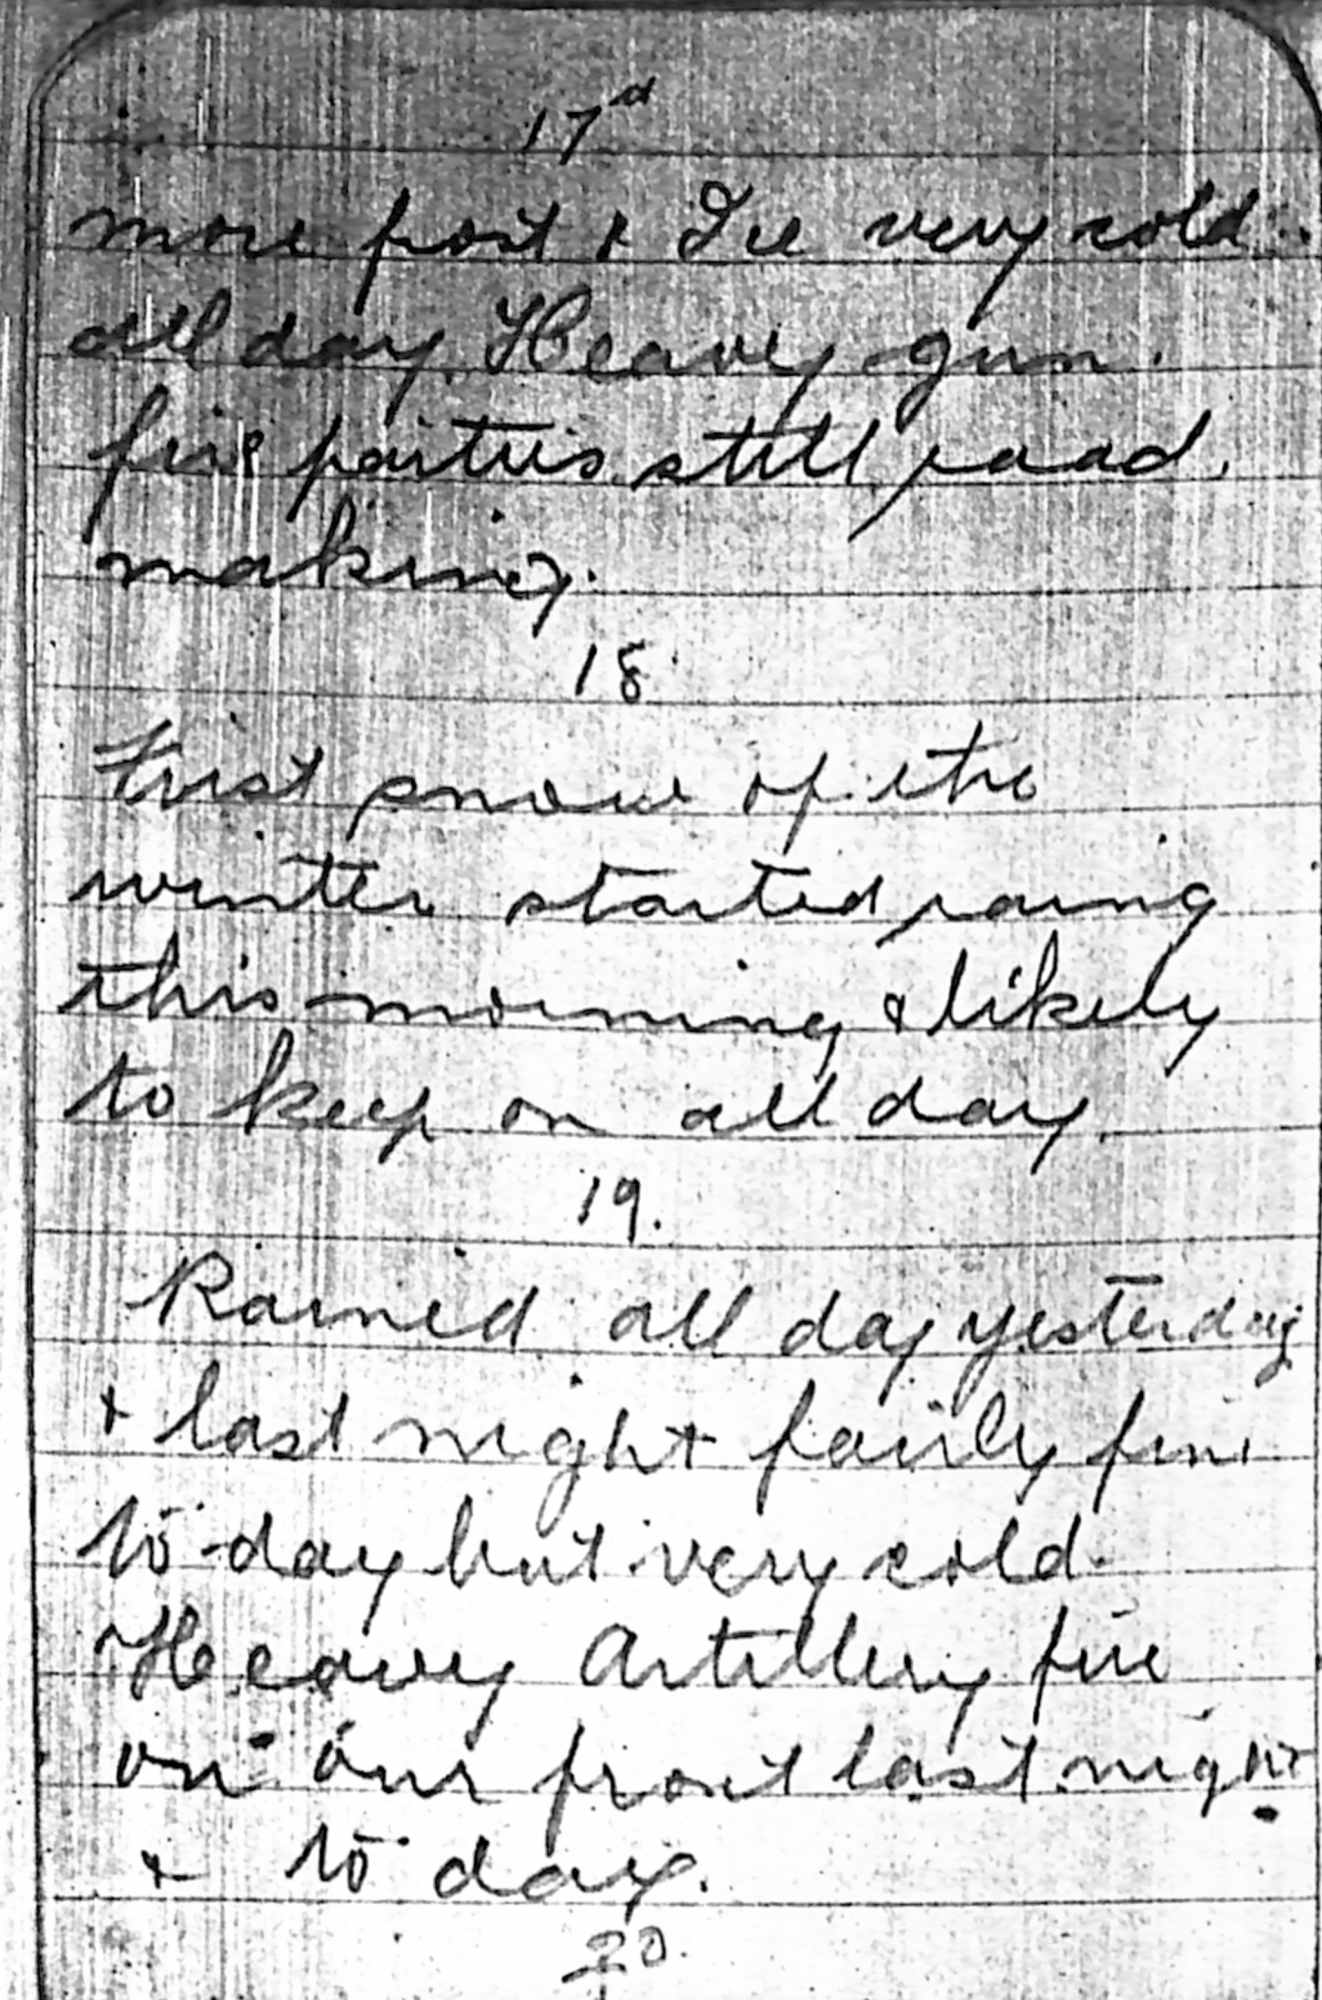 17d
more frost & Ice very cold
all day. Heavy gun.
fire parties still road.
making.
18
First snow of the
winter started raing
this morning & likely
to keep on all day
19.
Rained all day yesterday
& last night fairly fine
to-day but very cold.
Heavy Artillery fire
on our front last night
& to day.
20.